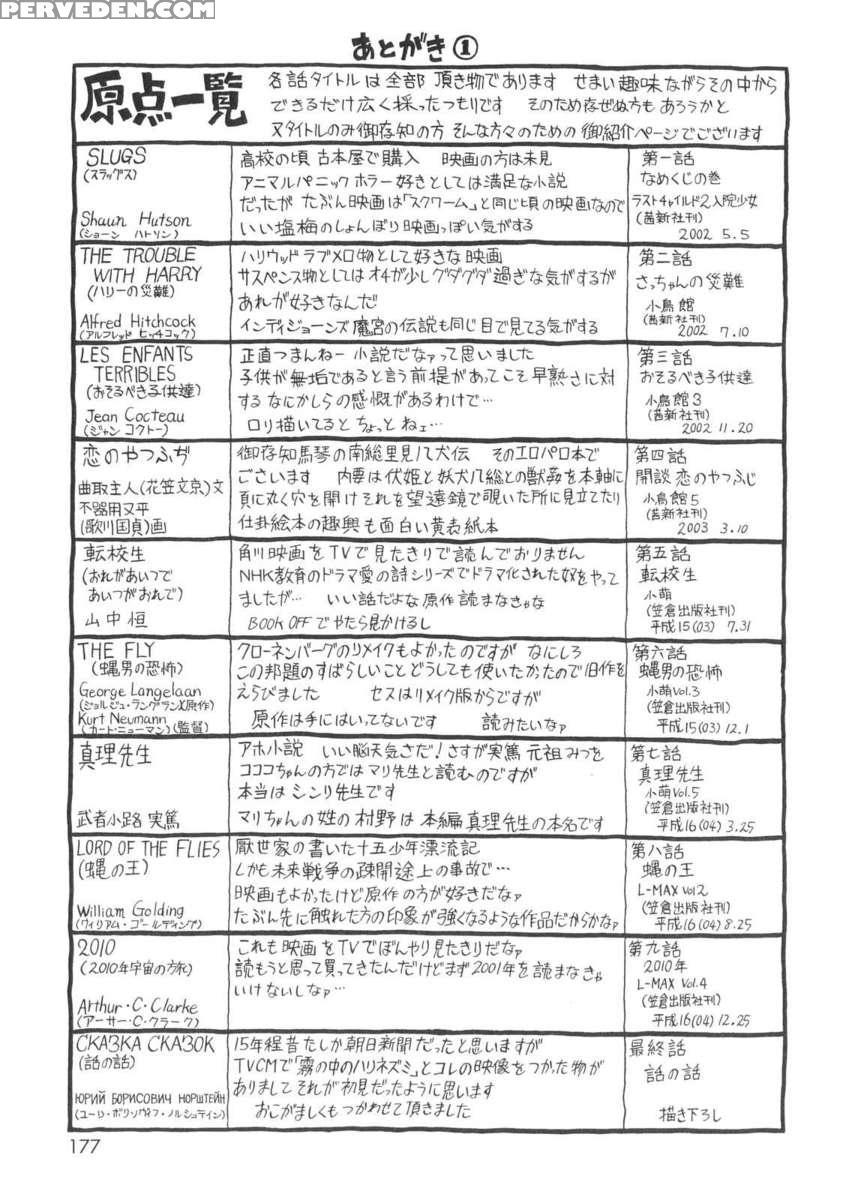 PERVEDEN.COM
あとがき①
原点一覧
各話タイトルは全部 頂き物であります せまい趣味ながらその中から
できるだけ広く採ったつもりです そのため存ぜぬ方も あろうかと
又タイトルのみ御存知の方 そんな方々のための 御紹介ページでございます
SLUGS
(スラッグス)
Shaun Hutson
(ショーン ハトソン)
高校の頃 古本屋で購入 映画の方は未見
アニマルパニックホラー好きとしては満足な小説
だったが たぶん映画は「スクワーム」と同じ頃の映画なので
いい塩梅のしょんぼり映画っぽい気がする
第一話
なめくじの巻
ラストチャイルド2入院少女
(茜新社刊)
2002 5.5
THE TROUBLE
WITH HARRY
(ハリーの災難)
Alfred Hitchcock
(アルフレッド ヒッチコック)
ハリウッド ラブメロ物として好きな映画
サスペンス物としてはオチが少しグダグダ過ぎな気がするが
あれが好きなんだ
インディジョーンズ 魔宮の伝説も同じ目で見てる気がする
第二話
さっちゃんの災難
小鳥館
(茜新社刊)
2002 7.10
LES ENFANTS
TERRIBLES
(おそるべき子供達)
Jean Cocteau
(ジャン コクトー)
正直つまんねー小説だなァって思いました
子供が無垢であると言う前提があってこそ早熟さに対
する なにかしらの感慨があるわけで…
ロリ描いてると ちょっと ねェ…
第三話
おそるべき子供達
小鳥館3
(茜新社刊)
2002 11.20
恋のやつふぢ
曲取主人(花笠文京)文
不器用又平
(歌川国貞)画
御存知馬琴の南総里見八犬伝 そのエロパロ本で
ございます 内要は伏姫と妖犬八総との獣姦を本軸に
頁に丸く穴を開けそれを望遠鏡で覗いた所に見立てたり
仕掛絵本の趣興も面白い黄表紙本
第四話
閑談 恋のやつふじ
小鳥館5
(茜新社刊)
2003 3.10
転校生
(おれがあいつで
あいつがおれで)
山中恒
角川映画をTVで見たきりで読んでおりません
NHK教育のドラマ愛の詩シリーズでドラマ化された奴をやって
ましたが… いい話だよな原作読まなきゃな
BOOK OFFでやたら見かけるし
第五話
転校生
小萌
(笠倉出版社刊)
平成15(03) 7.31
THE FLY
(蝿男の恐怖)
George Langelaan
(ジョルジュ・ランジュラン)(原作)
Kurt Neumann
(カート・ニューマン)(監督)
クローネンバーグのリメイクもよかったのですが なにしろ
この邦題のすばらしいこと どうしても使いたかたので旧作を
えらびました セスはリメイク版からですが
原作は手にはいってないです 読みたいなァ
第六話
蝿男の恐怖
小萌Vol.3
(笠倉出版社刊)
平成15(03) 12.1
真理先生
武者小路 実篤
アホ小説 いい脳天気さだ!さすが実篤 元祖みつを
コココちゃんの方では マリ先生と読むのですが
本当は シンリ先生です
マリちゃんの姓の村野は 本編真理先生の本名です
第七話
真理先生
小萌Vol.5
(笠倉出版社刊)
平成16(04) 3.25
LORD OF THE FLIES
(蝿の王)
William Golding
(ウィリアム・ゴールディング)
厭世家の書いた十五少年漂流記
しかも未来戦争の疎開途上の事故で…
映画もよかったけど原作の方が好きだなァ
たぶん先に触れた方の印象が強くなるような作品だからかなァ
第八話
蝿の王
L-MAX Vol2
(笠倉出版社刊)
平成16(04) 8.25
2010
(2010年宇宙の旅)
Arthur・C・Clarke
(アーサー・C・クラーク)
これも映画をTVでぼんやり見たきりだなァ
読もうと思って買ってきたんだけどまず2001年を読まなきゃ
いけないしなァ…
第九話
2010年
L-MAX Vol.4
(笠倉出版社刊)
平成16(04) 12.25
СКАЗКА СКАЗОК
(話の話)
ЮРИЙ БОРИСОВИЧ НОРШТЕЙН
(ユーリ・ボリソヴィチ・ノルシュテイン)
15年程昔 たしか朝日新聞だったと思いますが
TVCMで「霧の中のハリネズミ」とコレの映像をつかった物が
ありまして それが初見だったように思います
おこがましくも つかわせて頂きました
最終話
話の話
描き下ろし
177